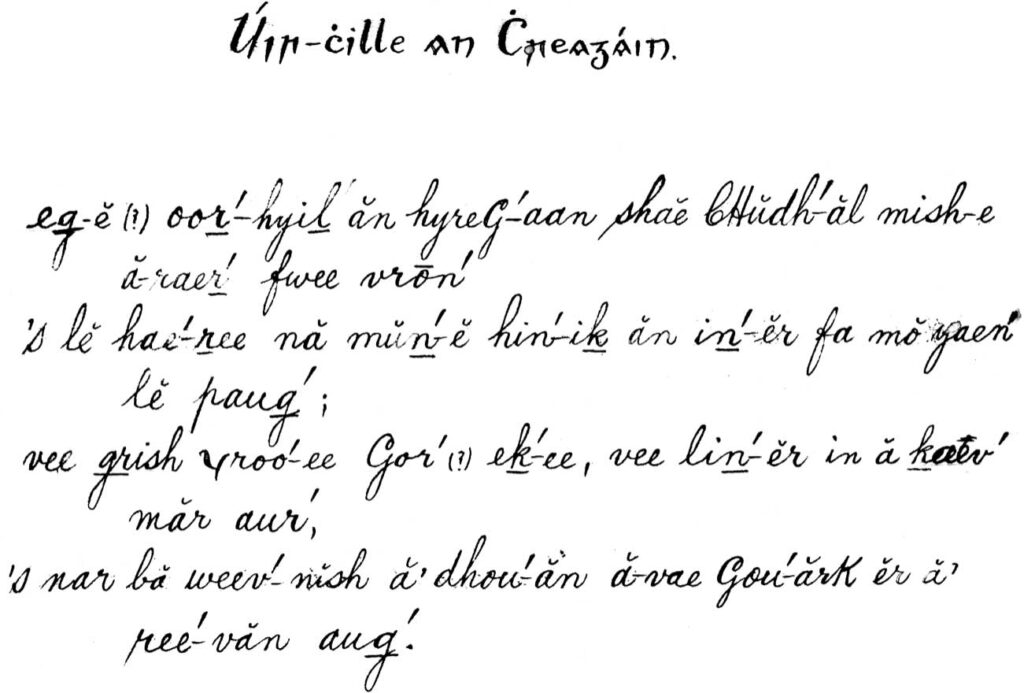 Úir-ċille an Ċreagáin.
eg-ĕ (?) oor̲′-hyil̲′ ăn hyreG′-aan shaĕ CHŭdh′-ăl mish-e
ă-raer̲′ fwee vrōn′
's lĕ haé-r̲ee nă mŭn̲′-ĕ hin′-ik̲ ăn in̲′-ĕr fa mŏ yaen′
lĕ paug̲′;
vee g̲rish γroo′-ee Gor′ (?) ek̲′-ee, vee lin̲′-ĕr in ă k̲aev′
măr aur′,
's nar bă weev′-nĭsh ă' dhou′-ăn ă-vae Gou′-ărK ĕr ă'
ree′-văn aug̲′.